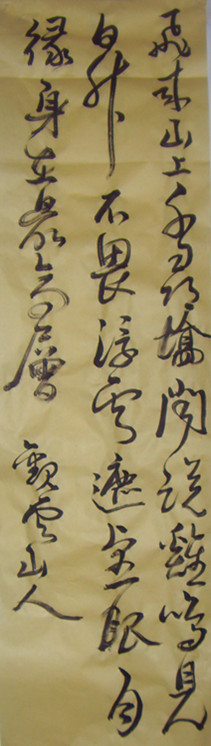 飛來山上千尋塔聞說雞鳴見
日升不畏浮雲遮望眼自
緣身在最高層 觀雲山人